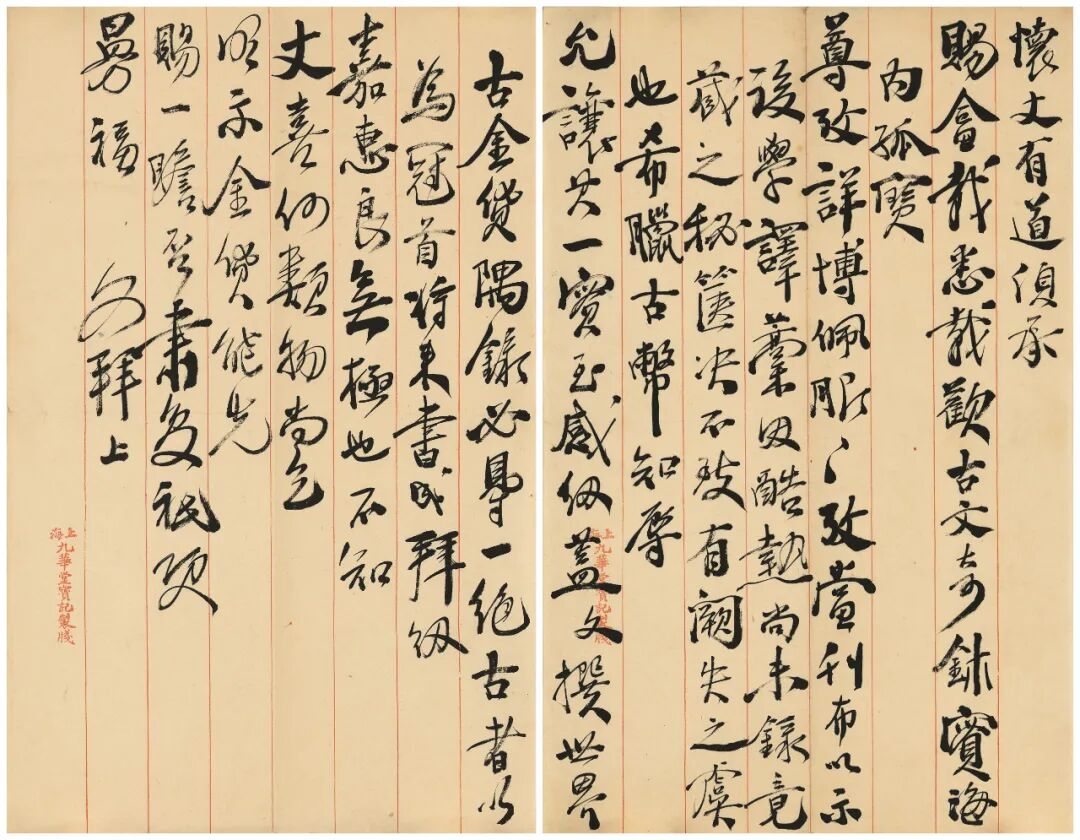 懷丈有道頃承
賜畣載悉載歡古文奇鉢寶海
內孤寶
尊考詳博佩服〻考當刊布以示
後學譯藁因酷熱尚未錄竟
藏之秘篋决不致有闕失之虞
也希臘古幣知辱
允讓其一寶至感紉蓋文撰世界
上海九華堂寶記製牋
古金貨隅錄必得一絕古者以
為冠首將來書成拜紉
嘉惠良無極也不知
丈喜何類物尚乞
明示金貨能先
賜一瞻否肅复祗頌
曼福 拜上
上海九華堂寶記製牋